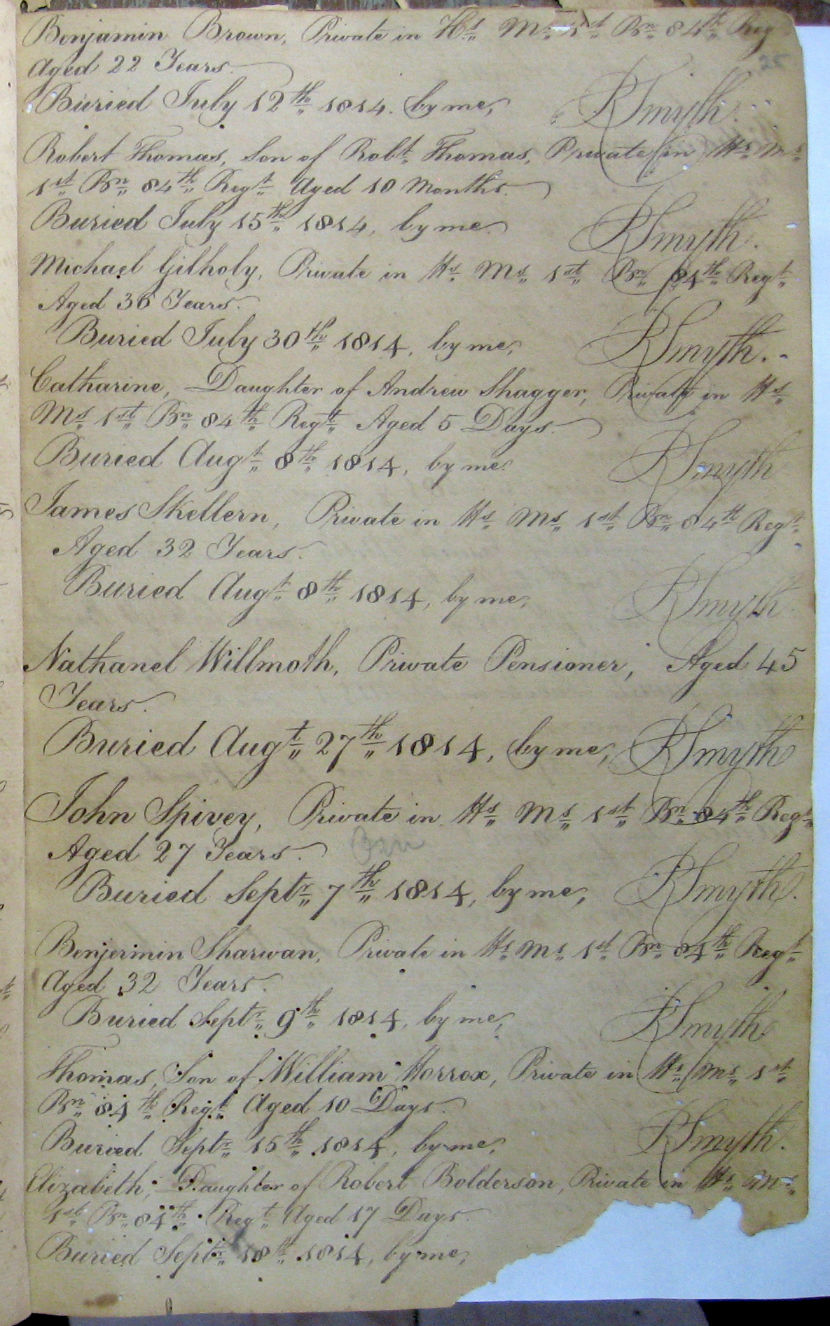 Benjamin Brown, Private in Hs Ms 1st Bn 84th Reg
25
Aged 22 Years.
Buried July 12th 1814. by me, R Smyth.
Robert Thomas, Son of Robt Thomas, Private in Hs Ms
1st Bn 84th Regt Aged 10 Months.
Buried July 15th 1814, by me. R Smyth.
Michael Gilholy, Private in Hs Ms 1st Bn 84th Regt
Aged 36 Years.
Buried July 30th 1814, by me, R Smyth.
Catharine, Daughter of Andrew Shagger, Private in Hs
Ms 1st Bn 84th Regt Aged 5 Days.
Buried Augt 8th 1814, by me R Smyth
James Skellern, Private in Hs Ms 1st Bn 84th Regt
Aged 32 Years.
Buried Augt 8th 1814, by me, R Smyth
Nathanel Willmoth, Private Pensioner, Aged 45
Years.
Buried Augt 27th 1814, by me, R Smyth
John Spivey, Private in Hs Ms 1st Bn 84th Regt
Aged 27 Years.
Buried Septr 7th 1814, by me, R Smyth.
Benjermin Sharwan, Private in Hs Ms 1st Bn 84th Regt
Aged 32 Years.
Buried Septr 9th 1814, by me, R Smyth
Thomas, Son of William Horrox, Private in Hs Ms 1st
Bn 84th Regt Aged 10 Days.
Buried Septr 15th 1814, by me, R Smyth.
Elizabeth, Daughter of Robert Bolderson, Private in Hs Ms
1st Bn 84th Regt Aged 17 Days.
Buried Septr 18th 1814, by me,